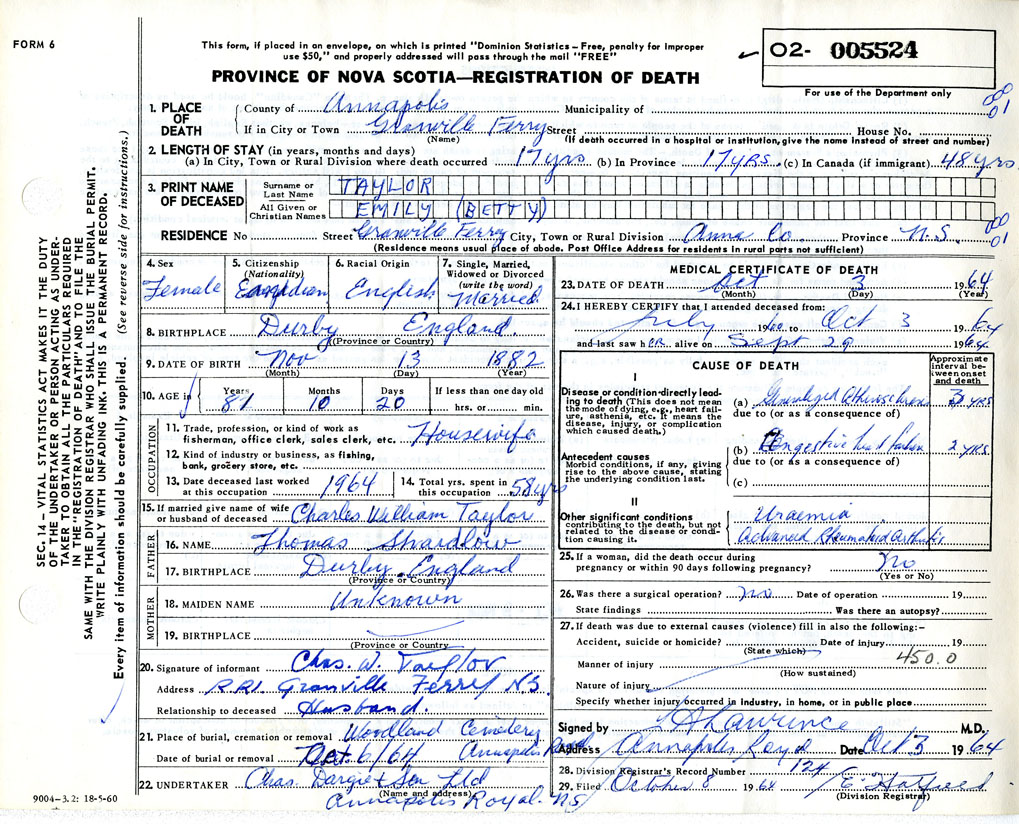 FORM 6
This form, if placed in an envelope, on which is printed "Dominion Statistics – Free, penalty for improper
use $50," and properly addressed will pass through the mail "FREE"
PROVINCE OF NOVA SCOTIA—REGISTRATION OF DEATH
02- 005524
For use of the Department only
000
01
1. PLACE OF DEATH
County of Annapolis Municipality of
If in City or Town Granville Ferry Street House No.
(Name) (If death occurred in a hospital or institution, give the name instead of street and number)
2. LENGTH OF STAY (in years, months and days)
(a) In City, Town or Rural Division where death occurred 17 yrs (b) In Province 17 yrs. (c) In Canada (if immigrant) 48 yrs
3. PRINT NAME OF DECEASED
Surname or Last Name TAYLOR
All Given or Christian Names EMILY (BETTY)
000
01
RESIDENCE No Street Granville Ferry City, Town or Rural Division Anna Co. Province N.S.
(Residence means usual place of abode. Post Office Address for residents in rural parts not sufficient)
4. Sex
Female
5. Citizenship
(Nationality)
Canadian
6. Racial Origin
English
7. Single, Married,
Widowed or Divorced
(write the word)
Married
8. BIRTHPLACE Durby England.
(Province or Country)
9. DATE OF BIRTH Nov 13 1882
(Month) (Day) (Year)
10. AGE in Years Months Days If less than one day old
81 10 20 hrs. or min.
OCCUPATION
11. Trade, profession, or kind of work as
fisherman, office clerk, sales clerk, etc. Housewife
12. Kind of industry or business, as fishing,
bank, grocery store, etc.
13. Date deceased last worked
at this occupation 1964
14. Total yrs. spent in
this occupation 58 yrs
15. If married give name of wife
or husband of deceased Charles William Taylor
FATHER
16. NAME Thomas Shardlow
17. BIRTHPLACE Durby, England
(Province or Country)
MOTHER
18. MAIDEN NAME Unknown
19. BIRTHPLACE
(Province or Country)
20. Signature of informant Chas. W. Taylor
Address RR1. Granville Ferry NS
Relationship to deceased Husband.
21. Place of burial, cremation or removal Woodland Cemetery
Annapolis Royal
Date of burial or removal Oct. 6/64
22. UNDERTAKER Chas. Dargie & Son Ltd
(Name and address)
Annapolis Royal. NS
9004-3.2: 18-5-60
MEDICAL CERTIFICATE OF DEATH
23. DATE OF DEATH Oct 3 1964
(Month) (Day) (Year)
24. I HEREBY CERTIFY that I attended deceased from:
July 1960 to Oct 3 1964
and last saw her alive on Sept 29 1964
CAUSE OF DEATH
Approximate
interval be-
tween onset
and death
I
Disease or condition directly lead-
ing to death (This does not mean
the mode of dying, e.g., heart fail-
ure, asthenia, etc. It means the
disease, injury, or complication
which caused death.)
(a) Generalized Atherosclerosis 3 yrs
due to (or as a consequence of)
(b) Congestive heart failure 2 yrs.
due to (or as a consequence of)
(c)
Antecedent causes
Morbid conditions, if any, giving
rise to the above cause, stating
the underlying condition last.
II
Other significant conditions
contributing to the death, but not
related to the disease or condi-
tion causing it.
Uraemia
Advanced Rheumatoid Arthritis
25. If a woman, did the death occur during
pregnancy or within 90 days following pregnancy? No
(Yes or No)
26. Was there a surgical operation? no Date of operation 19
State findings Was there an autopsy?
27. If death was due to external causes (violence) fill in also the following:–
Accident, suicide or homicide? Date of injury 19
(State which)
450.0
Manner of injury
(How sustained)
Nature of injury
Specify whether injury occurred in industry, in home, or in public place
Signed by Lawrence M.D.
Address Annapolis Royal Date Oct 3 1964
28. Division Registrar's Record Number 124
29. Filed October 8 1964 E Hatfield
(Division Registrar)
SEC. 14 – VITAL STATISTICS ACT MAKES IT THE DUTY
OF THE UNDERTAKER OR PERSON ACTING AS UNDER-
TAKER TO OBTAIN ALL THE PARTICULARS REQUIRED
IN THE "REGISTRATION OF DEATH" AND TO FILE THE
SAME WITH THE DIVISION REGISTRAR WHO SHALL ISSUE THE BURIAL PERMIT.
WRITE PLAINLY WITH UNFADING INK. THIS IS A PERMANENT RECORD.
Every item of information should be carefully supplied. (See reverse side for instructions.)